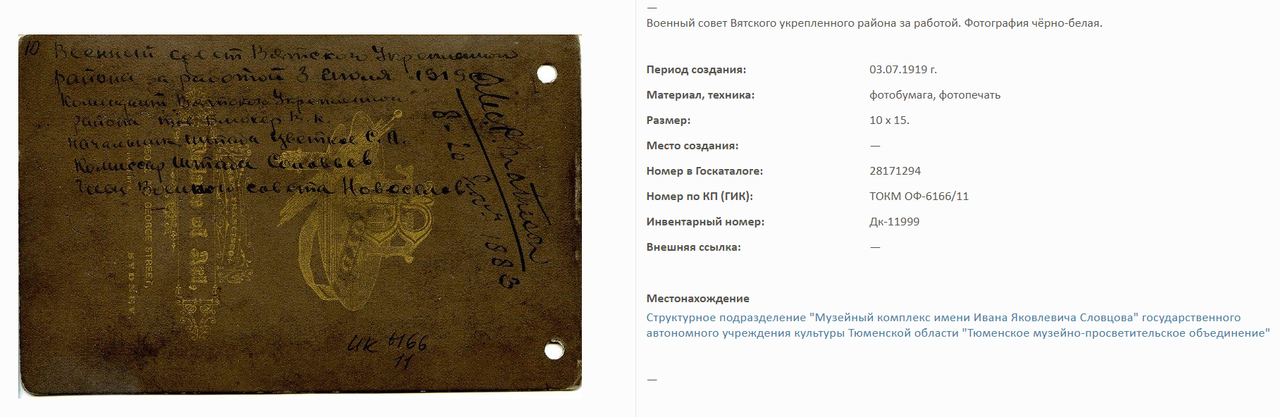 10 Военный совет Вятского Укрепленного
района за работой 3 июля 1919
Комендант Вятского Укрепленного
района тов. Блюхер В.К.
Начальник штаба Цветков С.
Комиссар Штаба Соловьев
Член Военного совета Новоселов
8-20
1883
GEORGE STREET,
SYDNEY
6166
11
—
Военный совет Вятского укрепленного района за работой. Фотография чёрно-белая.
Период создания: 03.07.1919 г.
Материал, техника: фотобумага, фотопечать
Размер: 10 x 15.
Место создания: —
Номер в Госкаталоге: 28171294
Номер по КП (ГИК): ТОКМ ОФ-6166/11
Инвентарный номер: Дк-11999
Внешняя ссылка: —
Местонахождение
Структурное подразделение "Музейный комплекс имени Ивана Яковлевича Словцова" государственного
автономного учреждения культуры Тюменской области "Тюменское музейно-просветительское объединение"
—